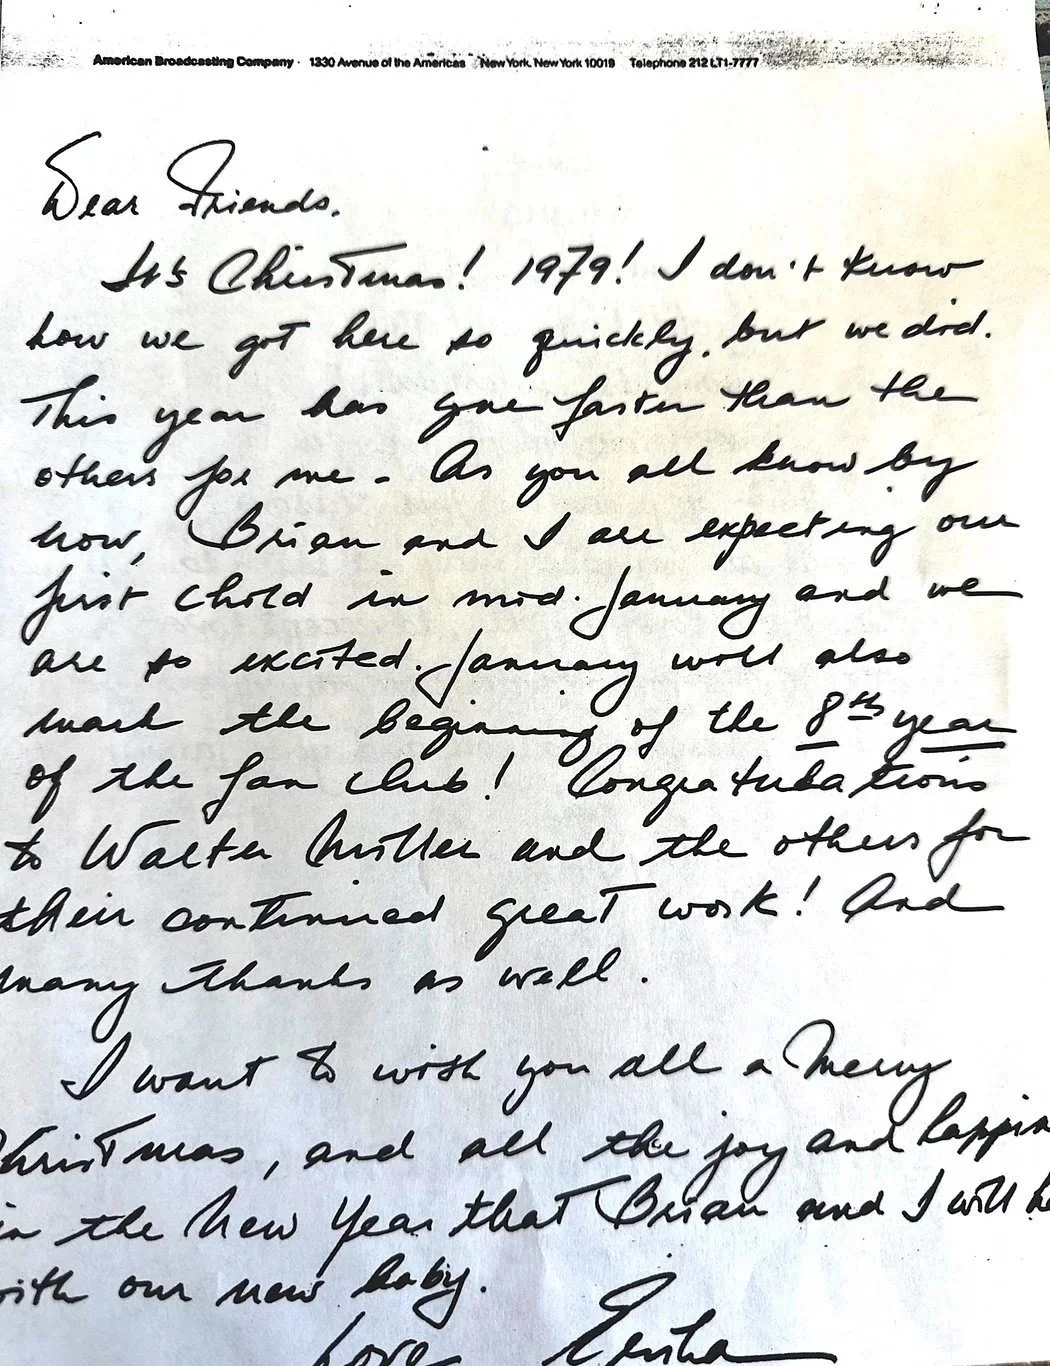 American Broadcasting Company · 1330 Avenue of the Americas New York, New York 10019 Telephone 212 LT1-7777
Dear Friends,
It's Christmas! 1979! I don't know
how we got here so quickly, but we did.
This year has gone faster than the
others for me - As you all know by
now, Brian and I are expecting our
first child in mid-January and we
are so excited. January will also
mark the beginning of the 8th year
of the fan club! Congratulations
to Walter Miller and the others for
their continued great work! And
many thanks as well.
I want to wish you all a Merry
Christmas, and all the joy and happin
in the New Year that Brian and I will h
with our new baby.
Love